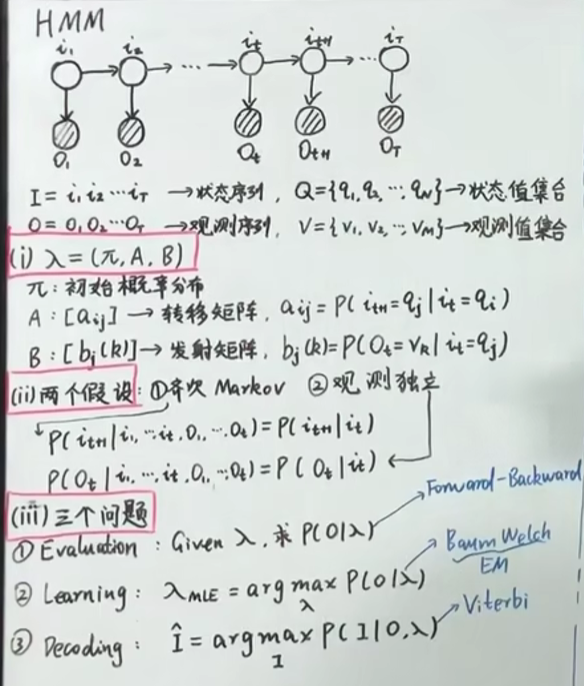 HMM
i₁ i₂ iₜ iₜ₊₁ i_T
... ...
O₁ O₂ Oₜ Oₜ₊₁ O_T
I = i₁ i₂ ⋯ i_T → 状态序列, Q={q₁, q₂, ⋯, q_N} → 状态值集合
O = O₁ O₂ ⋯ O_T → 观测序列, V={v₁, v₂, ⋯, v_M} → 观测值集合
(i) λ = (π, A, B)
π: 初始概率分布
A: [aᵢⱼ] → 转移矩阵, aᵢⱼ = P(iₜ₊₁=qⱼ | iₜ=qᵢ)
B: [bⱼ(k)] → 发射矩阵, bⱼ(k)=P(Oₜ=v_k | iₜ=qⱼ)
(ii) 两个假设: ①齐次 Markov ②观测独立
P(iₜ₊₁ | i₁, ⋯ iₜ, O₁, ⋯ Oₜ) = P(iₜ₊₁ | iₜ)
P(Oₜ | i₁, ⋯, iₜ, O₁, ⋯ Oₜ) = P(Oₜ | iₜ)
(iii) 三个问题
Forward-Backward
① Evaluation: Given λ, 求 P(O|λ)
Baum Welch
EM
② Learning: λ_MLE = arg max_λ P(O|λ)
Viterbi
③ Decoding: Î = arg max_I P(I|O,λ)